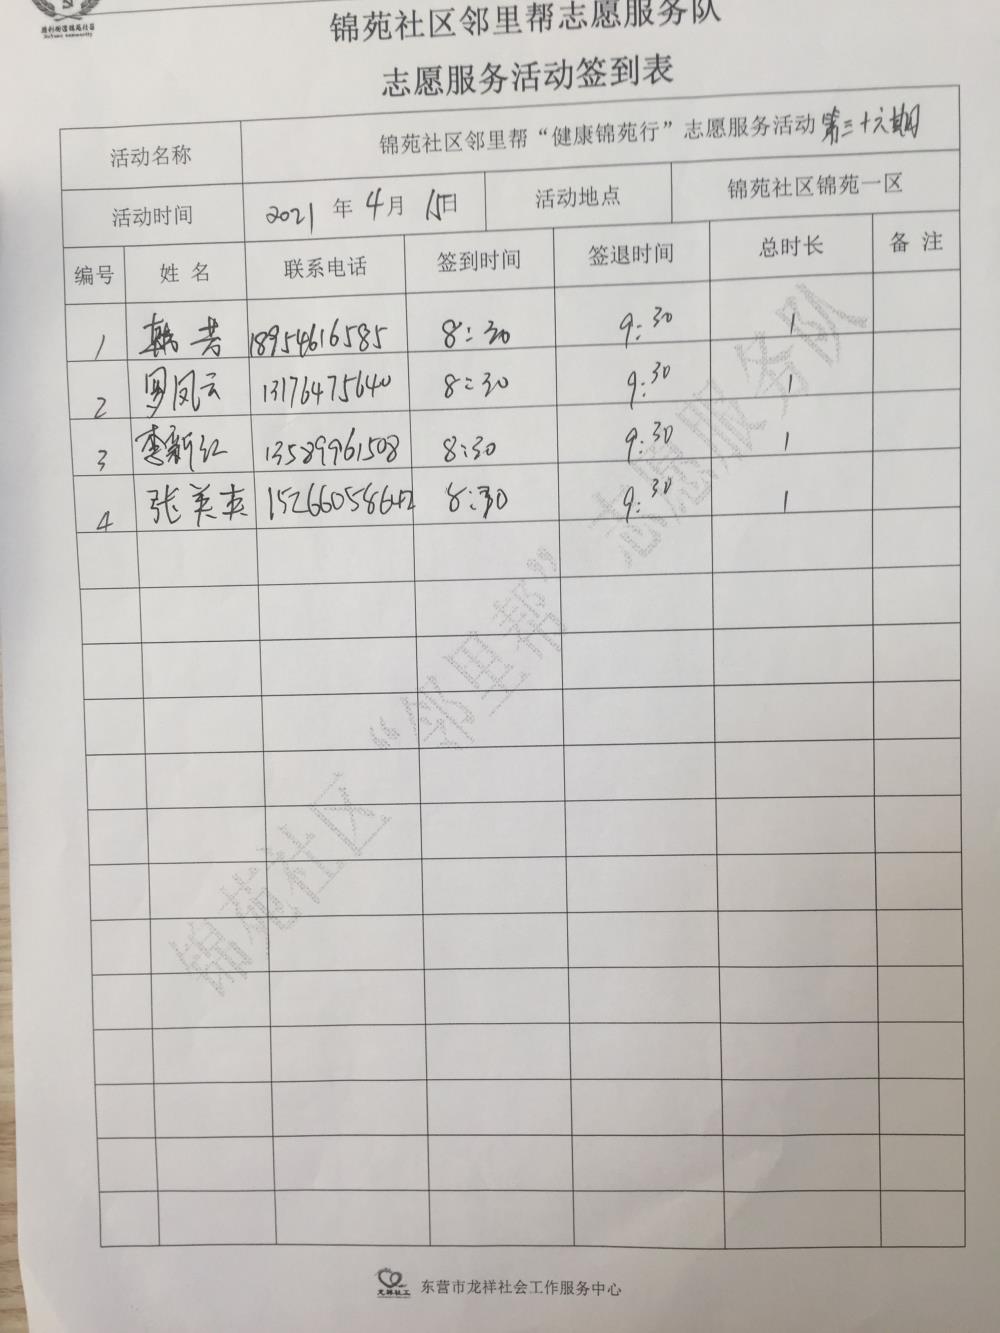 锦苑社区邻里帮志愿服务队
志愿服务活动签到表
活动名称 锦苑社区邻里帮“健康锦苑行”志愿服务活动第三十六期
活动时间 2021 年 4 月 15 日 活动地点 锦苑社区锦苑一区
编号 姓 名 联系电话 签到时间 签退时间 总时长 备 注
1 韩芳 18954616585 8:30 9:30 1
2 罗凤云 13176475640 8:30 9:30 1
3 李新红 13589961508 8:30 9:30 1
4 张美英 8:30 9:30 1
锦苑社区“邻里帮”志愿服务队
龙祥社工 东营市龙祥社会工作服务中心